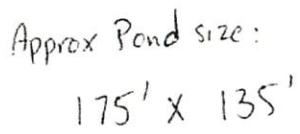 Approx Pond size:
175' x 135'